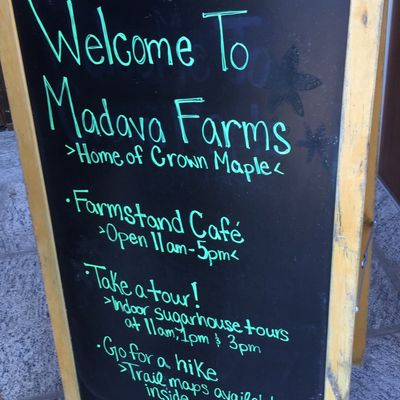 Welcome To
Madava Farms
>Home of Crown Maple<
·Farmstand Café
>Open 11am-5pm<
·Take a tour!
>Indoor sugarhouse tours
at 11am, 1pm & 3pm
·Go for a hike
>Trail maps
inside